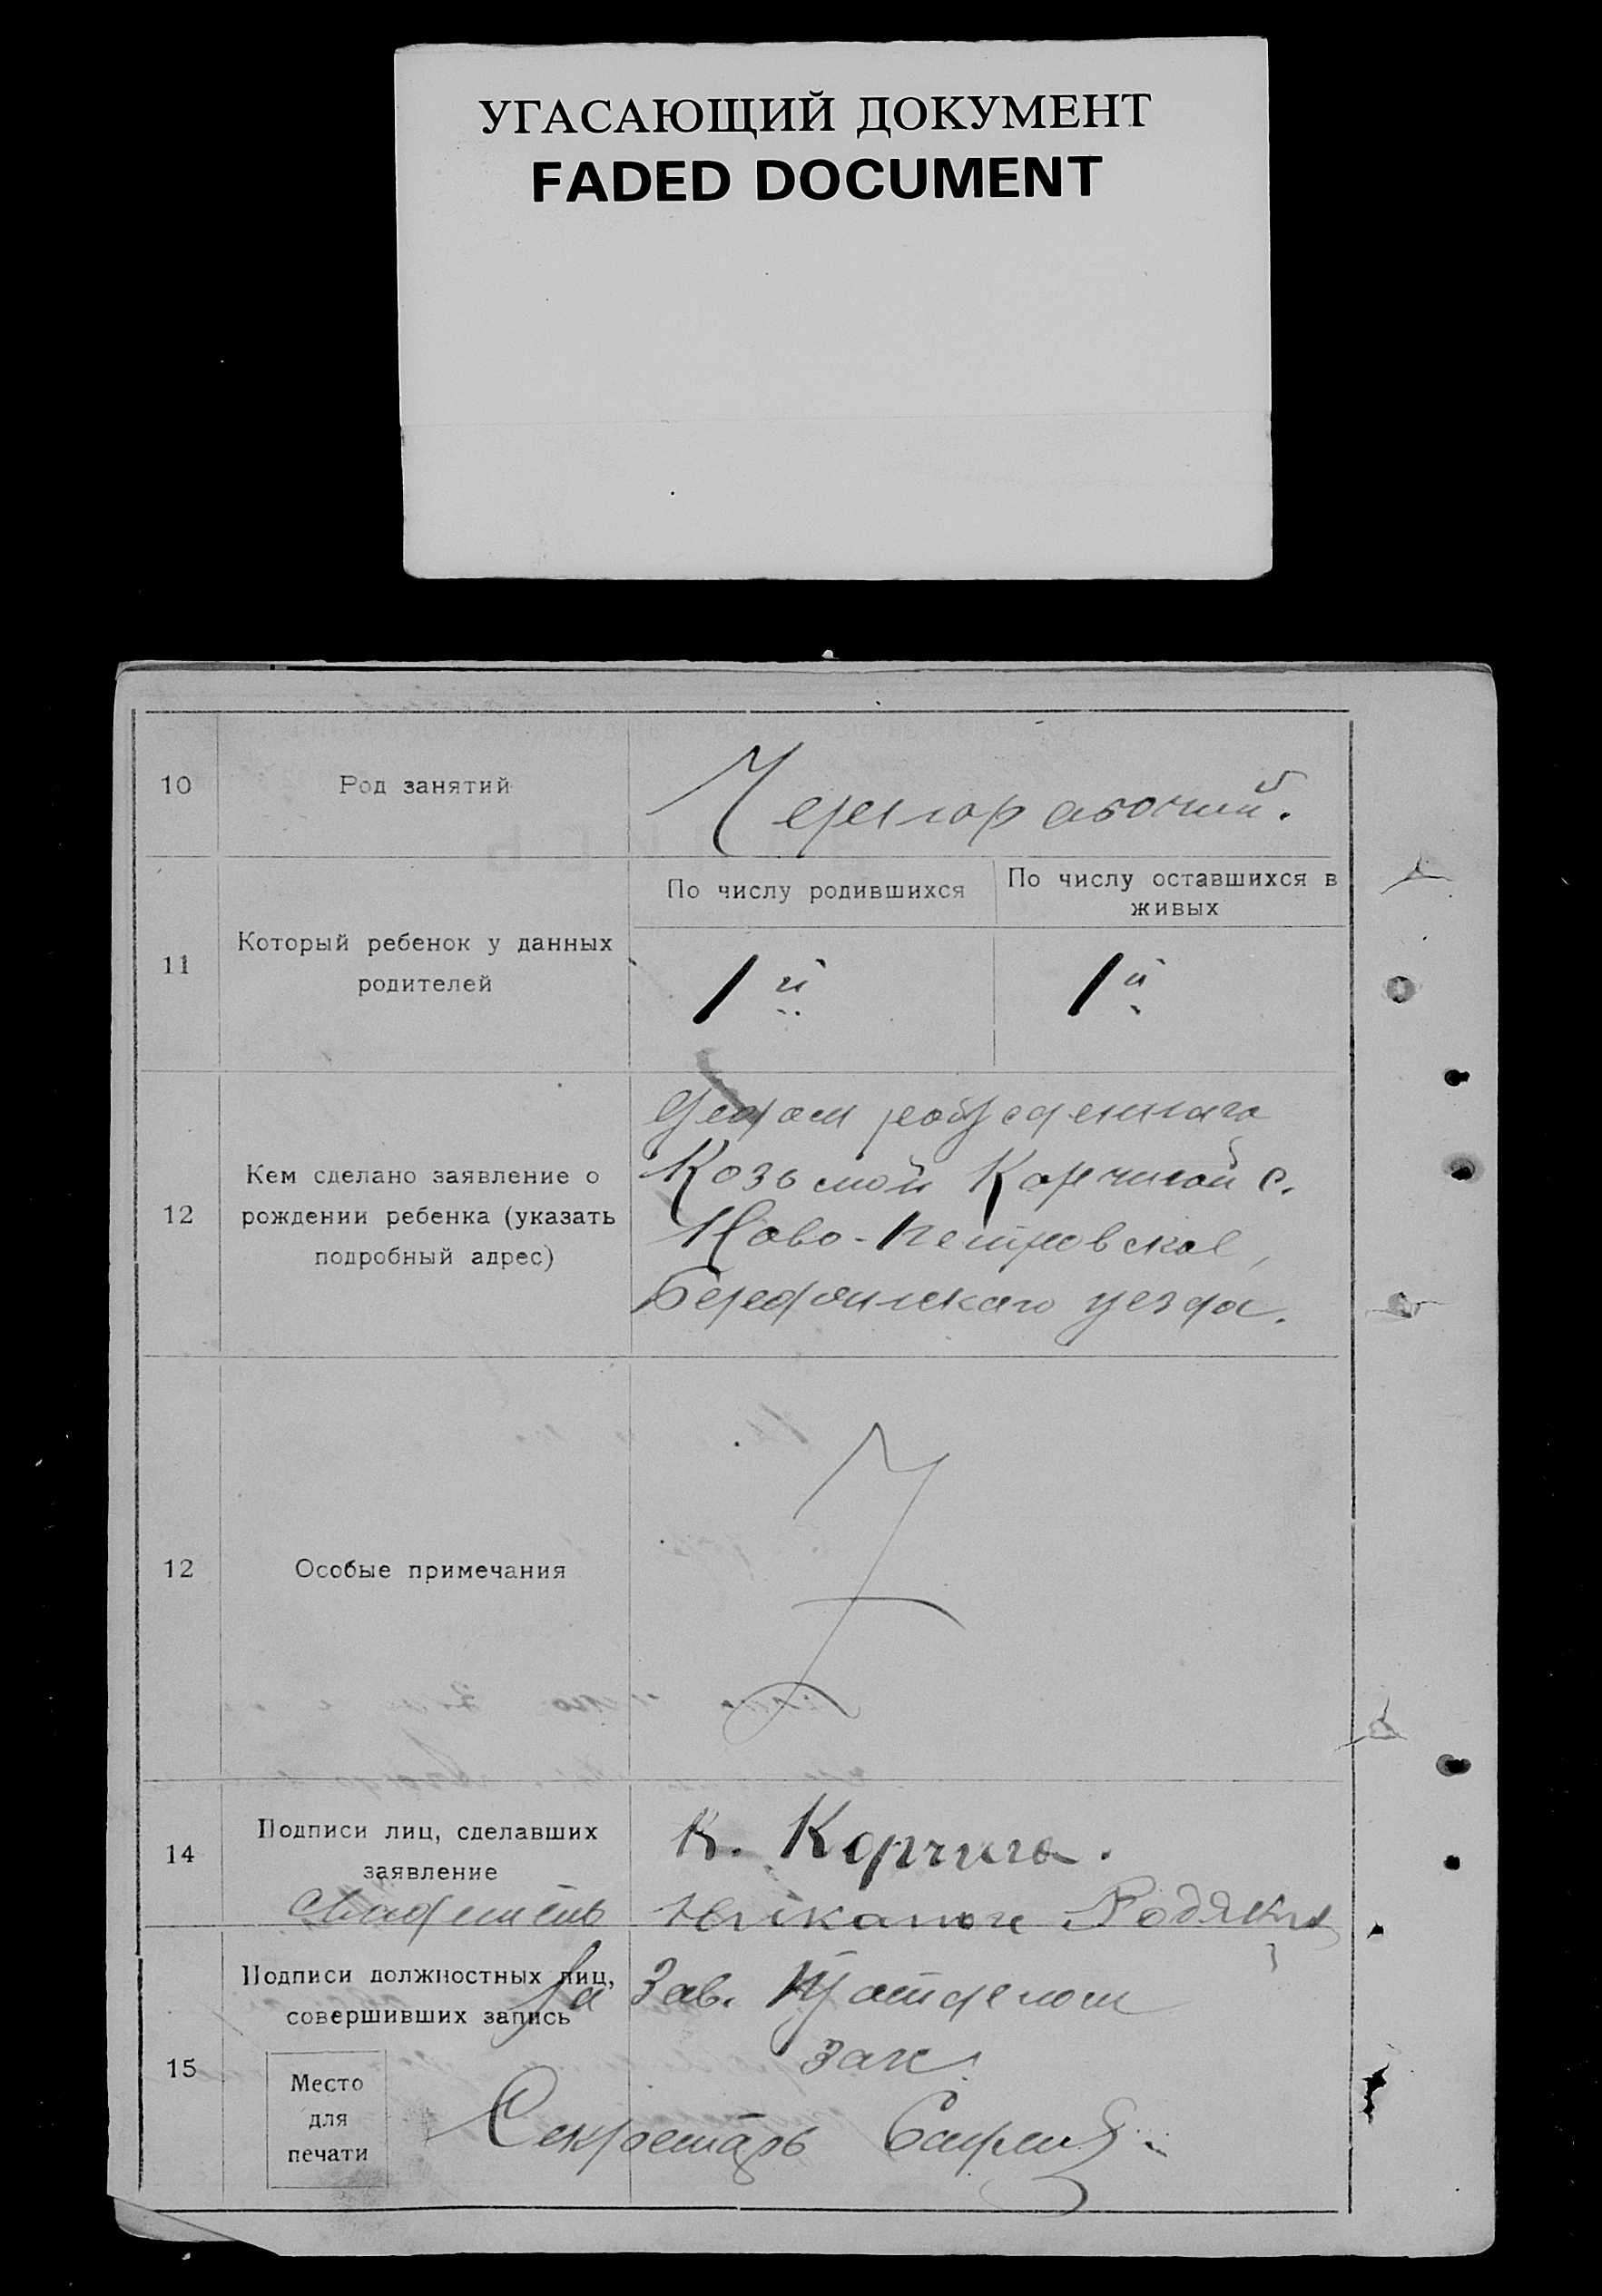 УГАСАЮЩИЙ ДОКУМЕНТ
FADED DOCUMENT
10
Род занятий
Чернорабочий.
11
Который ребенок у данных
родителей
По числу родившихся
По числу оставшихся в
живых
1й
1й
12
Кем сделано заявление о
рождении ребенка (указать
подробный адрес)
Дедом рожденнаго
Козьмой Корчигой с.
Ново-Петровское,
Бердянскаго уезда.
12
Особые примечания
14
Подписи лиц, сделавших
заявление
К. Корчига.
Свидетель
15
Подписи должностных лиц,
совершивших запись
За Зав.
Место
для
печати
Секретарь